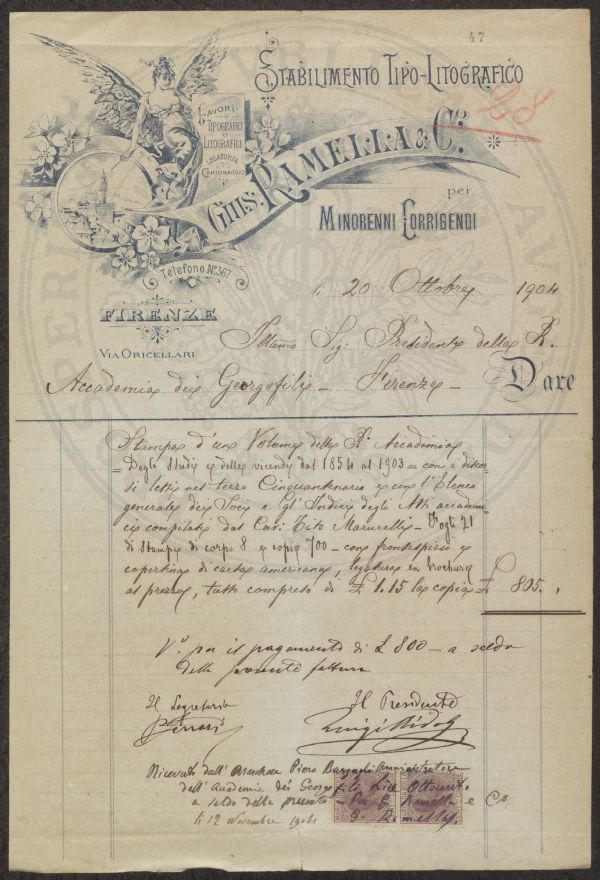 47
Stabilimento Tipo-Litografico
28
Lavori
Tipografici
e
Litografici
Legatoria
Cartonaggio
Gius. Ramella & C.º
pei
Minorenni Corrigendi
Telefono Nº 367
Firenze
Via Oricellari
li 20 Ottobre 1904
Illumo Sig. Presidente della R.
Accademia dei Georgofili - Firenze - Dare
Stampa d'un Volume della Rª Accademia
= Degli studi e delle vicende dal 1854 al 1903 = con i discor
si letti nel terzo Cinquantenario e con l'Elenco
generale dei Soci e gl'Indici degli Atti accadem
ici compilati dal Cav. Tito Marucelli - Fogli 21
di stampa di corpo 8 e copie 700 - con frontespizio e
copertina di carta americana, legatura in brochure
al prezzo, tutto compreso di £ 1.15 la copia £ 805.,
Vº per il pagamento di £ 800 - a saldo
della presente fattura
Il Segretario Il Presidente
Ferrari Luigi Ridolfi
Ricevuti dall' Piero Bargagli Amministratore
dell'Accademia dei Georgofili Lire Ottocento
a saldo della presente - Per G. Ramella e Co
li 12 Novembre 1904 G. Ramella